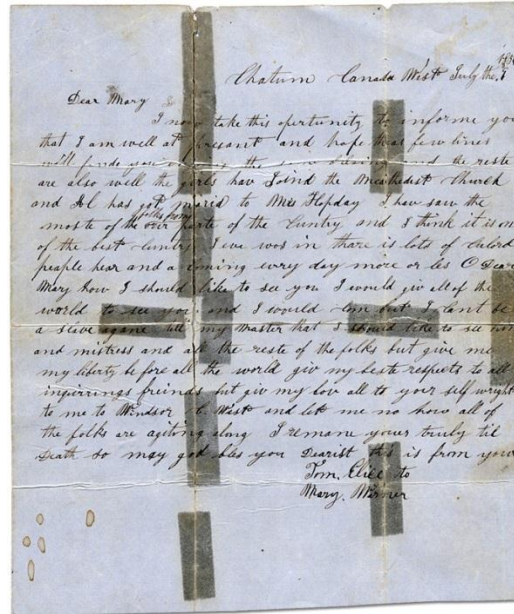 Chatum Canada West July the, 7
Dear Mary
I now take this opertunity to informe you
that I am well at presant and hope thas few lines
will finde you the same and the reste
are also well the girls hav Joind the Meathedest Church
and Al has got maried to Mis Hopday I hav saw the
moste of the parte of the Cuntry and I think it is on
of the best Cuntry I eve was in thare is lots of
peaple hear and a coming evry day more or les O Dear
Mary how I should like to see you I would giv all of the
world to see you and I would Com but I cant be
a slave agane tell my Master that I should like to see
and mistress and all the reste of the folks but give me
my liberty before all the world giv my beste respects to all
inquirrings friends but giv my lov all to your self wright
to me to Windsor C West and let me no how all of
the folks are along I remane your truly til
Death so may god bles you Dearist this is from your
Tom, to
Mary,